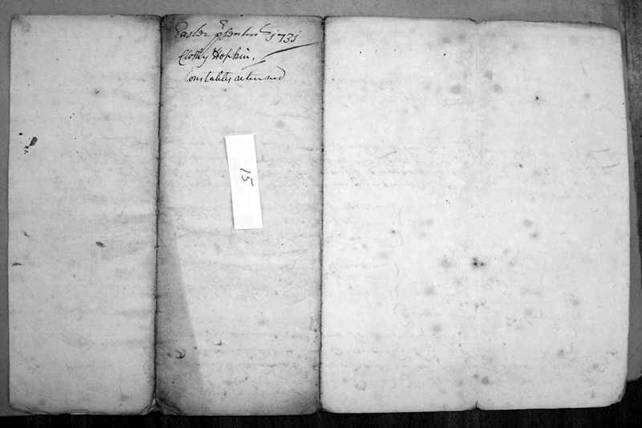 Easter p'sentmts 1731
Clothy Hopkin.
Constables returned
15